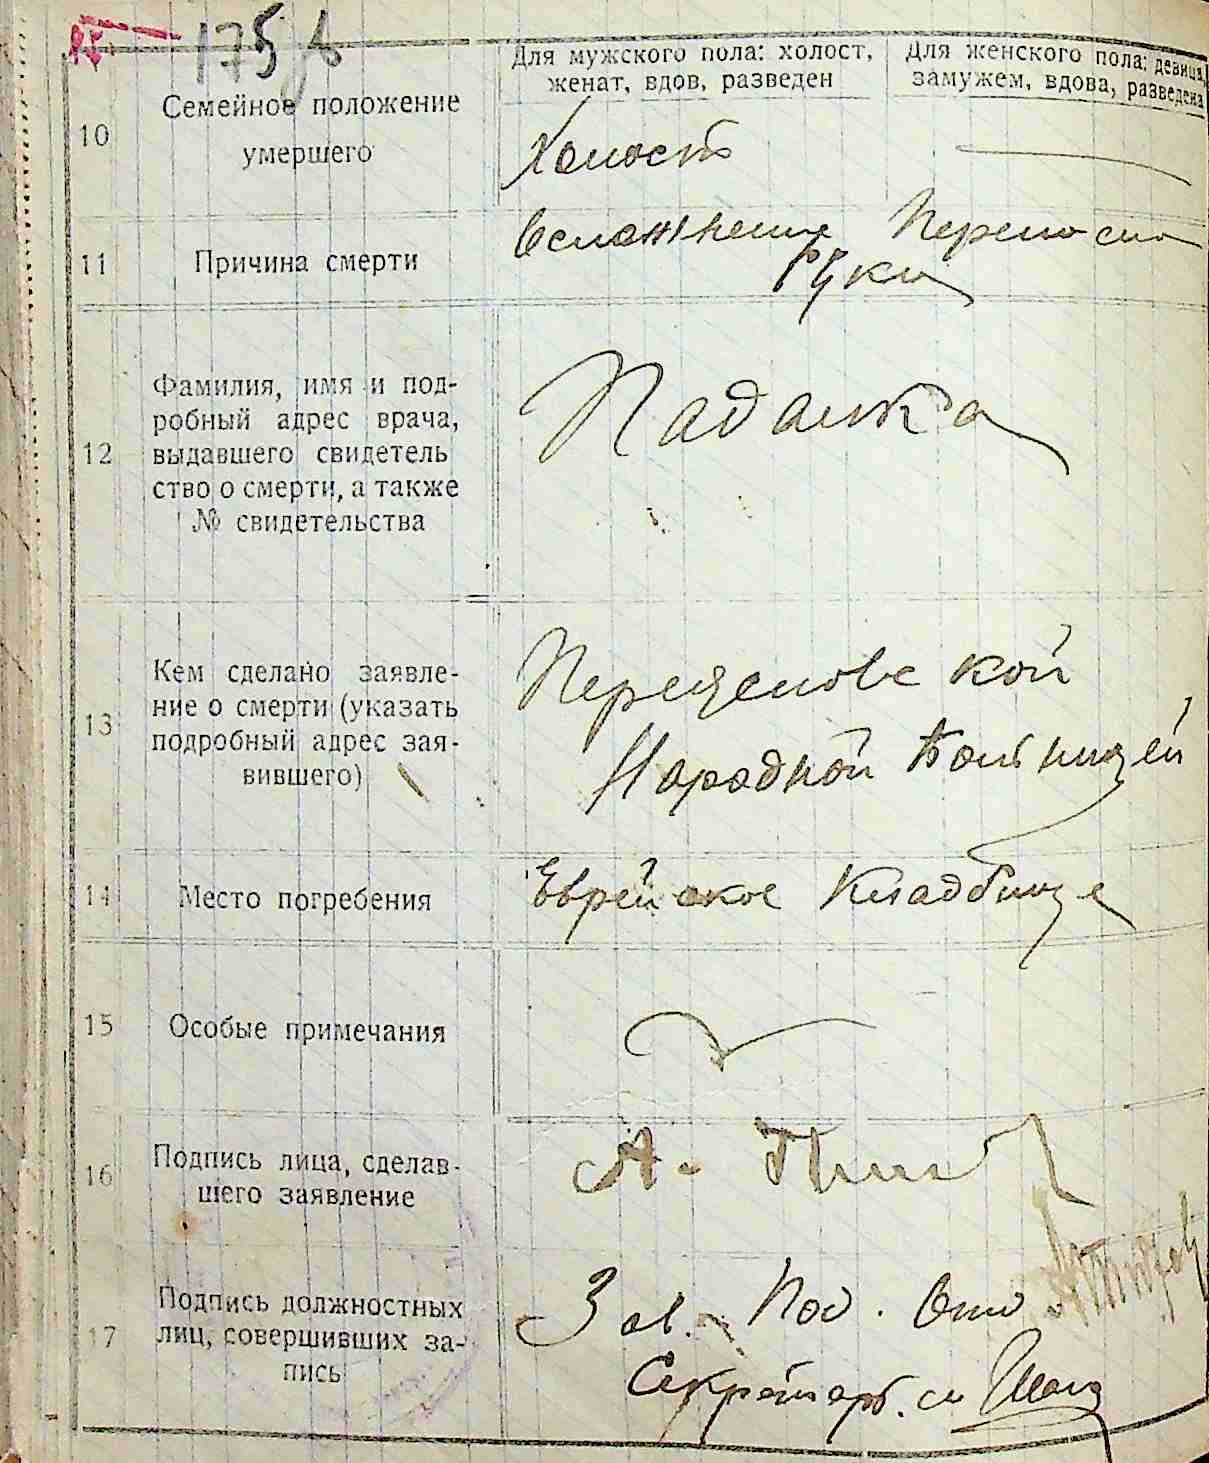 175
Для мужского пола: холост,
женат, вдов, разведен
Для женского пола: девица,
замужем, вдова, разведена
10
Семейное положение
умершего
Холост
11
Причина смерти
Осложнение
Руки
12
Фамилия, имя и под-
робный адрес врача,
выдавшего свидетель
ство о смерти, а также
№ свидетельства
Падалка
13
Кем сделано заявле-
ние о смерти (указать
подробный адрес зая-
вившего)
Народной Больницей
14
Место погребения
Еврейское Кладбище
15
Особые примечания
16
Подпись лица, сделав-
шего заявление
А.
17
Подпись должностных
лиц, совершивших за-
пись
Зав. Под. Отд
Секретарь